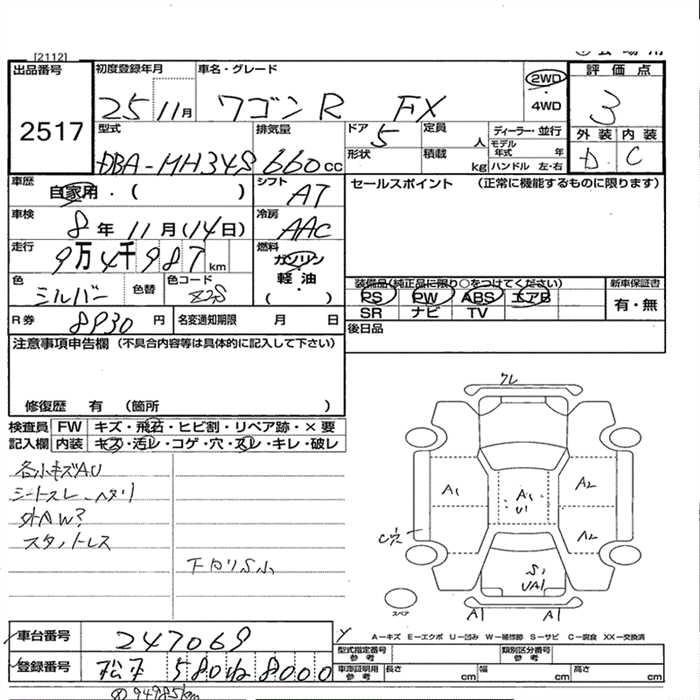 [2112]
出品番号
2517
初度登録年月
25 11月
車名・グレード
ワゴンR FX
2WD
・
4WD
評価点
3
外装 内装
D C
型式
DBA-MH34S
排気量
660cc
ドア
5
定員
人
ディーラー・並行
形状
積載
kg
モデル年式 年
ハンドル 左・右
車歴
自家用・( )
シフト
AT
セールスポイント (正常に機能するものに限ります)
車検
8年 11月(14日)
冷房
AAC
走行
9万4千987km
燃料
ガソリン
軽油
( )
色
シルバー
色替
色コード
Z2S
装備品(純正品に限り○をつけてください)
新車保証書
PS PW ABS エアB
SR ナビ TV
有・無
R券
8930円
名変通知期限 月 日
後日品
注意事項申告欄 (不具合内容等は具体的に記入して下さい)
修復歴 有 (箇所 )
検査員 FW キズ・飛石・ヒビ割・リペア跡・×要
記入欄 内装 キズ・汚レ・コゲ・穴・スレ・キレ・破レ
各小キズAU
シートスレ ヘタリ
外AW?
スタットレス
下回りS小
ワレ
A1
A1
U1
A2
A2
C穴
S1
UA1
A1 A1
スペア
A─キズ E─エクボ U─凹み W─補修跡 S─サビ C─腐食 XX─交換済
車台番号
247069
登録番号
松本 580 ね 8000
型式指定番号
参考
類別区分番号
参考
車庫証明用
参考
長さ cm 幅 cm 高さ cm
94985km